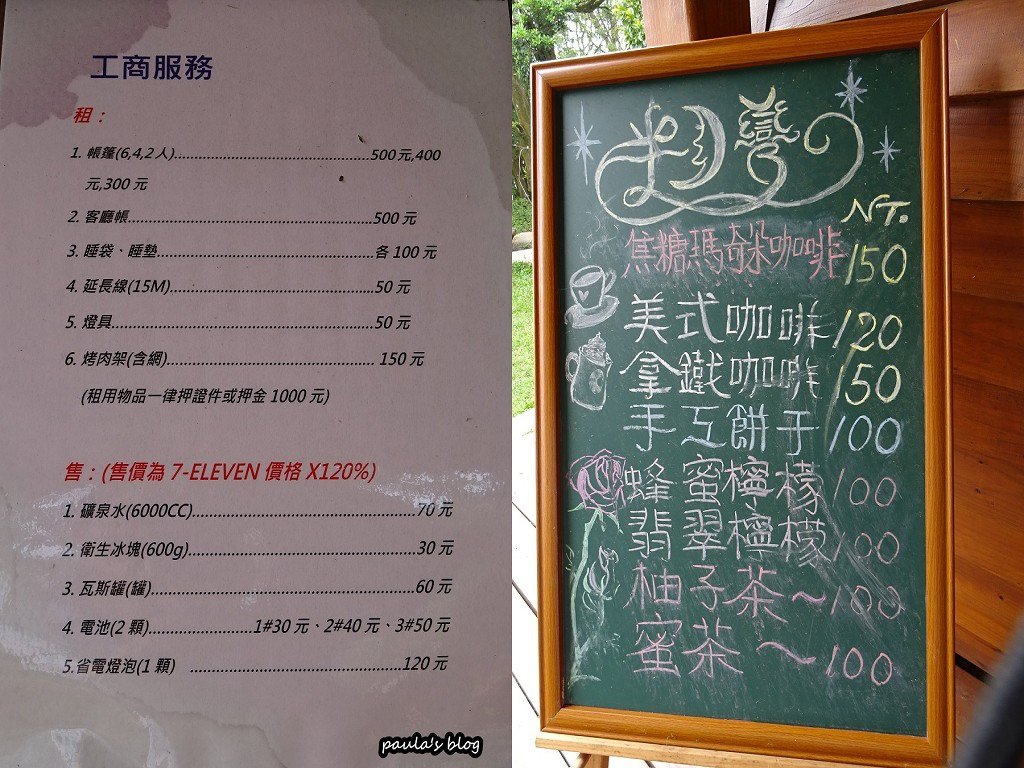 工商服務
租：
1. 帳篷(6,4,2人)..................................................500元,400
元,300 元
2. 客廳帳..............................................................500 元
3. 睡袋、睡墊.......................................................各 100 元
4. 延長線(15M)....................................................50 元
5. 燈具..................................................................50 元
6. 烤肉架(含網)..................................................... 150 元
(租用物品一律押證件或押金 1000 元)
售：(售價為 7-ELEVEN 價格 X120%)
1. 礦泉水(6000CC).........................................................70 元
2. 衛生冰塊(600g).........................................................30 元
3. 瓦斯罐(罐)...................................................................60 元
4. 電池(2 顆)..........................1#30 元、2#40 元、3#50 元
5.省電燈泡(1 顆) ......................................................120 元
paula's blog
灣
NT.
焦糖瑪奇朵咖啡 150
美式咖啡 120
拿鐵咖啡 150
手工餅干 100
蜂蜜檸檬 100
翡翠檸檬 100
柚子茶～100
蜜茶～100